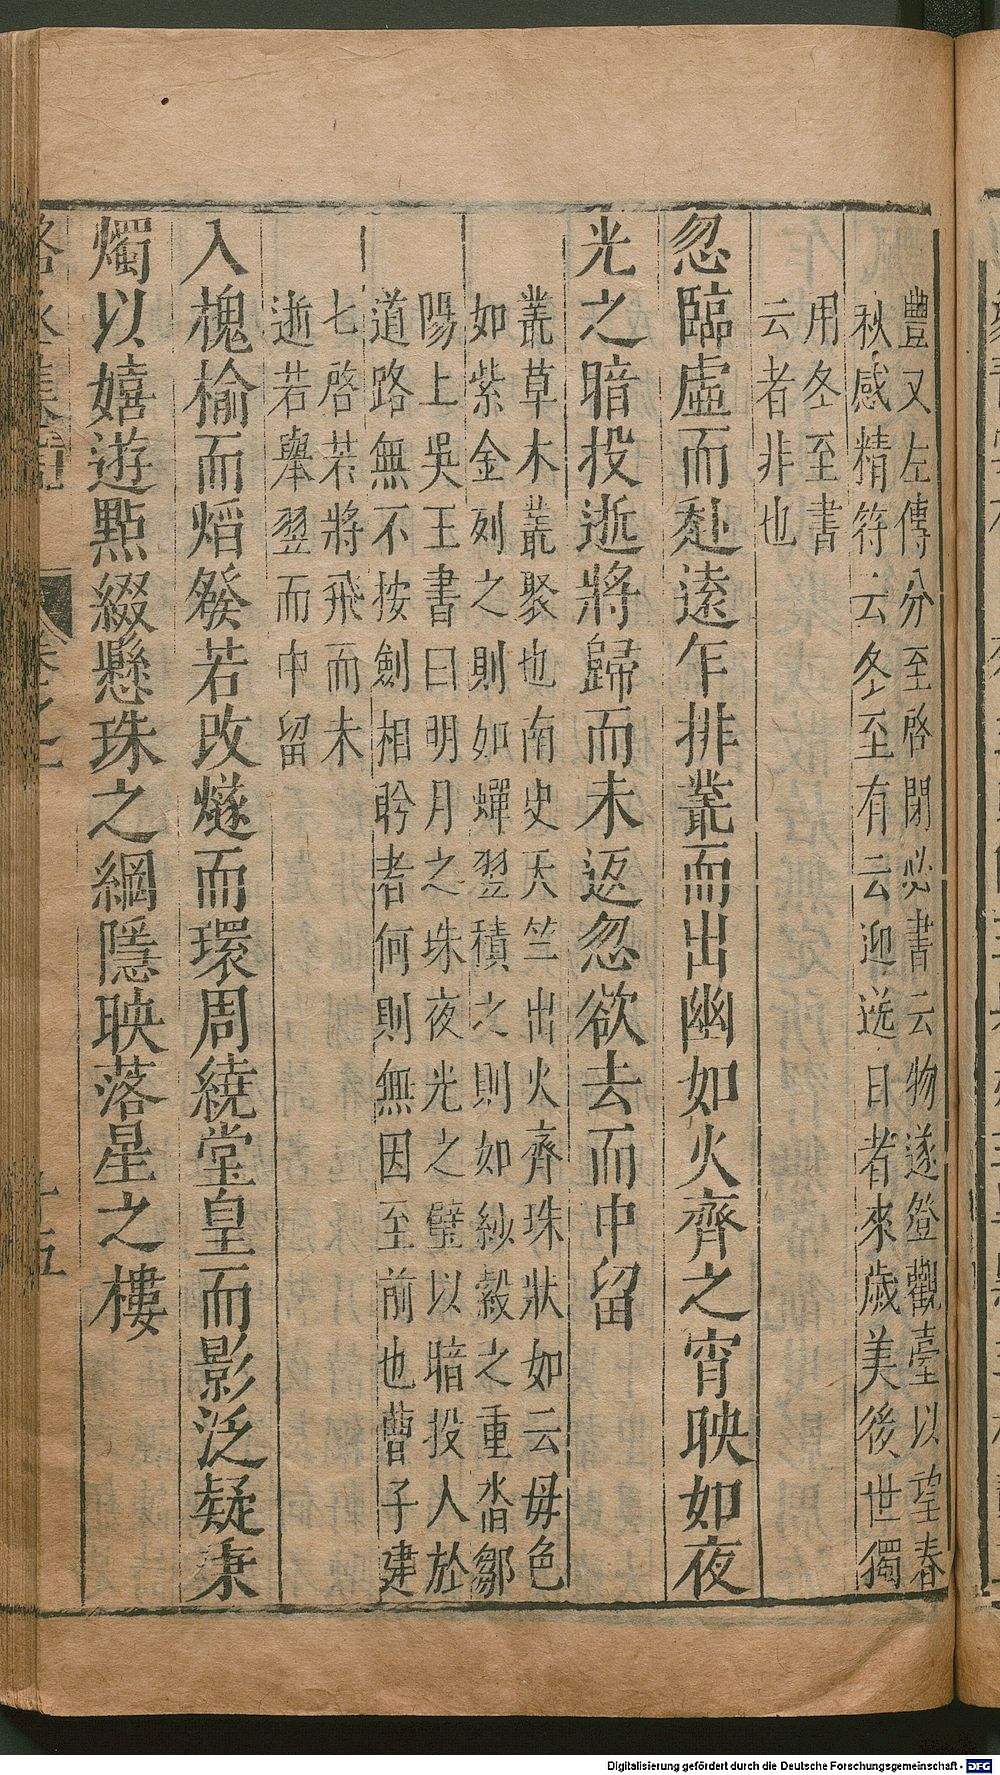 豐又左傳分至啓閉必書云物遂登觀臺以望春
秋感精符云冬至有云迎送日者來歲美後世獨
用冬至書
云者非也
忽臨虛而赴遠乍排叢而出幽如火齊之宵映如夜
光之暗投逝將歸而未返忽欲去而中留
叢草木叢聚也南史天竺出火齊珠狀如云毋色
如紫金列之則如蟬翌積之則如紗縠之重沓鄒
陽上吳王書曰明月之珠夜光之璧以暗投人於
道路無不按劍相盻者何則無因至前也曹子建
七啓若將飛而未
逝若舉翌而中留
入槐榆而熖發若改燧而環周繞堂皇而影泛疑秉
燭以嬉遊點綴懸珠之網隱映落星之樓
卷之一
十五
Digitalisierung gefördert durch die Deutsche Forschungsgemeinschaft - DFG